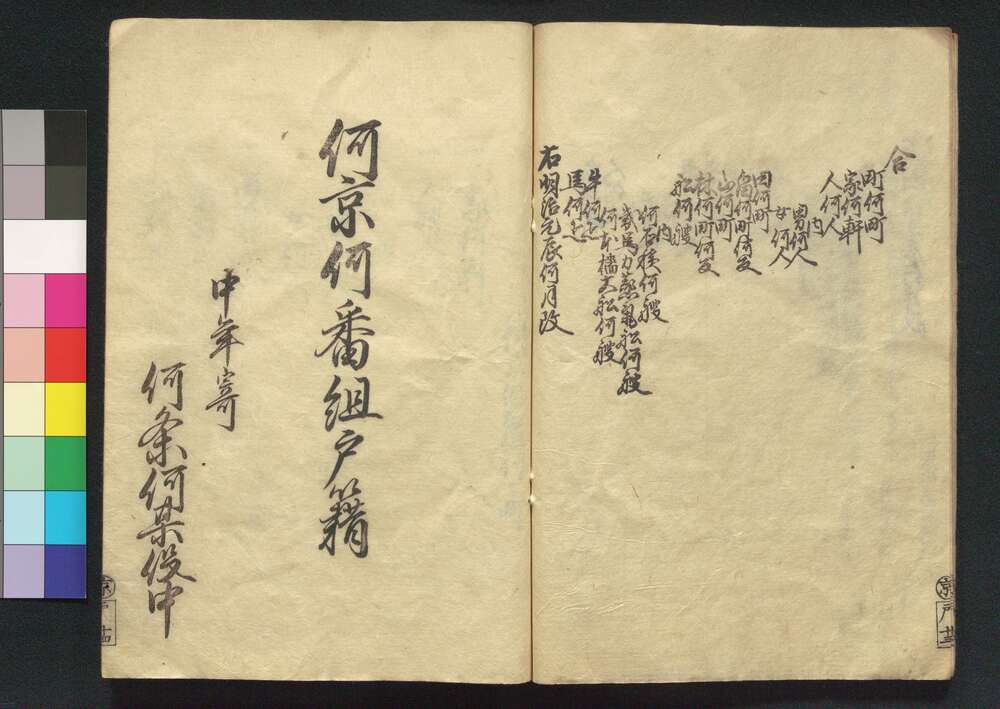 合
町何町
家何軒
人何人
内
男何人
女何人
田何町
畠何町何反
山何町
林何町何反
船何艘
内
何石積何艘
幾馬力蒸氣船何艘
何百檣大船何艘
牛何疋
馬何疋
右明治元辰何月改
何京何番組戸籍
中年寄
何条何某役中
京
戸
京
戸